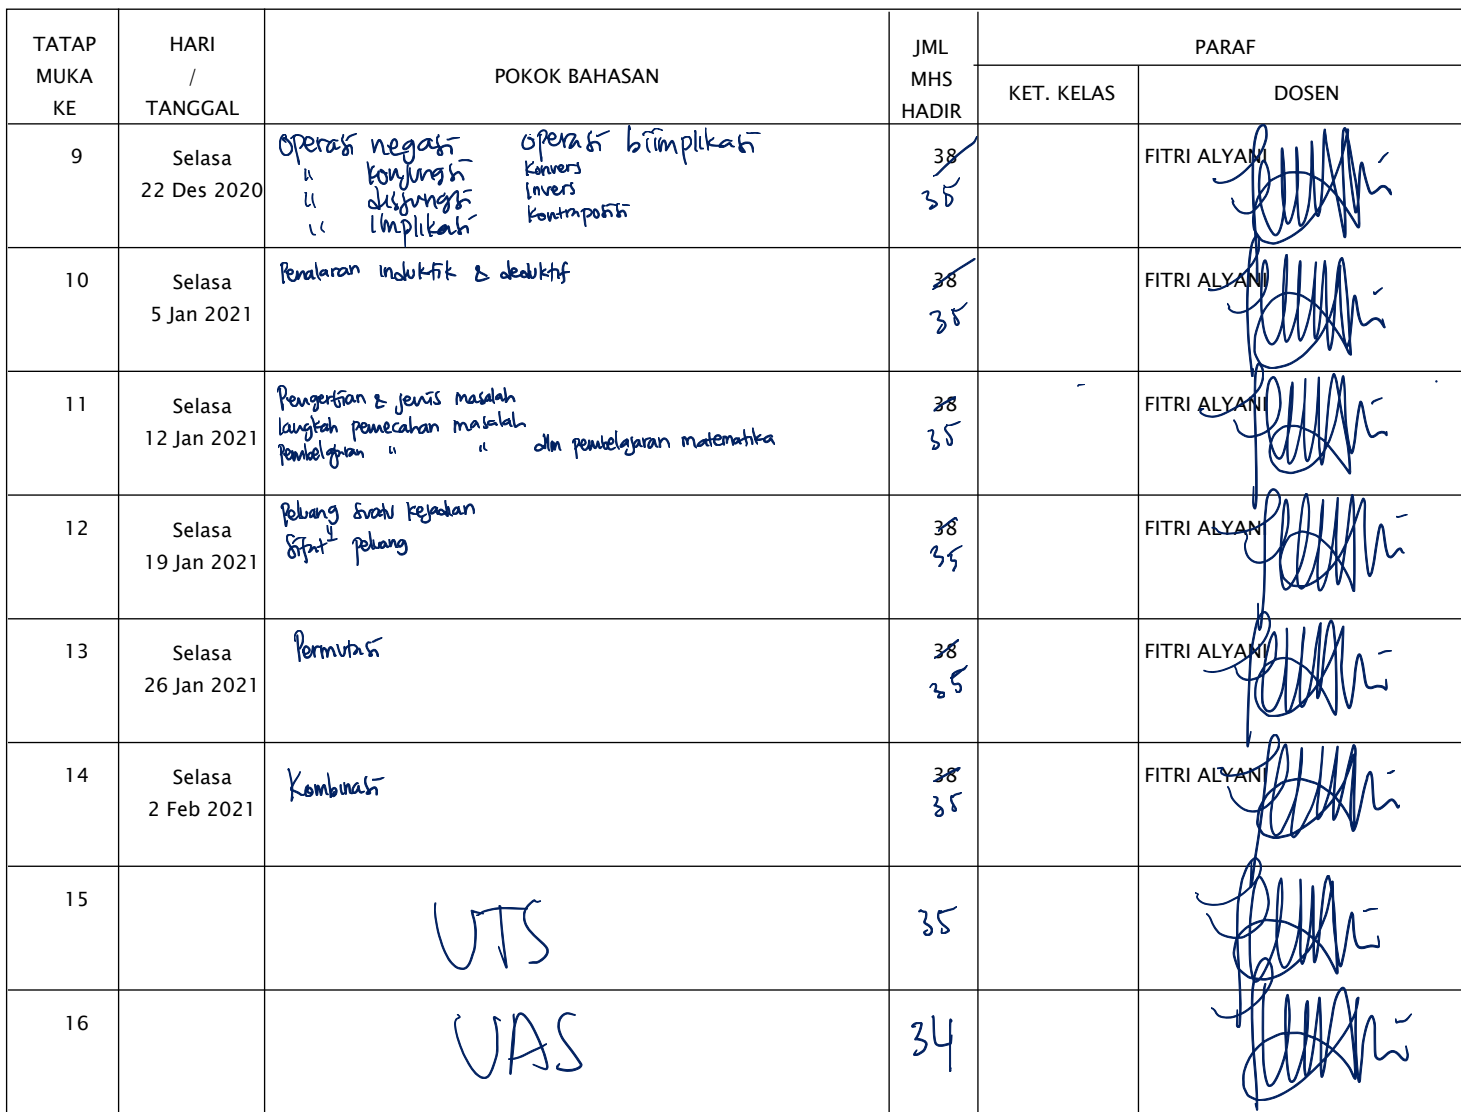 TATAP MUKA KE
HARI / TANGGAL
POKOK BAHASAN
JML MHS HADIR
PARAF
KET. KELAS
DOSEN
9
Selasa
22 Des 2020
Operasi negasi
" konjungsi
" disjungsi
" implikasi
Operasi biimplikasi
Konvers
Invers
Kontraposisi
38
35
FITRI ALYANI
10
Selasa
5 Jan 2021
Penalaran induktif & deduktif
38
35
FITRI ALYANI
11
Selasa
12 Jan 2021
Pengertian & jenis masalah
langkah pemecahan masalah
Pembelajaran " " dlm pembelajaran matematika
38
35
FITRI ALYANI
12
Selasa
19 Jan 2021
Peluang suatu kejadian
Sifat² peluang
38
35
FITRI ALYANI
13
Selasa
26 Jan 2021
Permutasi
38
35
FITRI ALYANI
14
Selasa
2 Feb 2021
Kombinasi
38
35
FITRI ALYANI
15
UTS
35
16
UAS
34